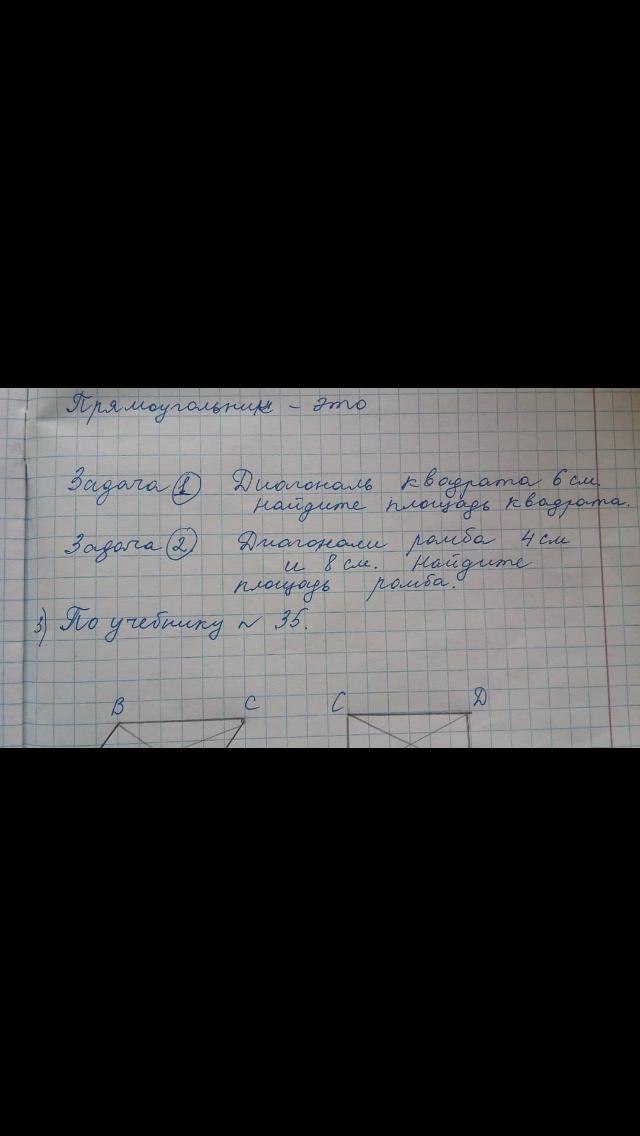 Прямоугольник – это
Задача 1 Диагональ квадрата 6 см.
Найдите площадь квадрата.
Задача 2 Диагонали ромба 4 см
и 8 см. Найдите
площадь ромба.
3) По учебнику № 35.
B C C D